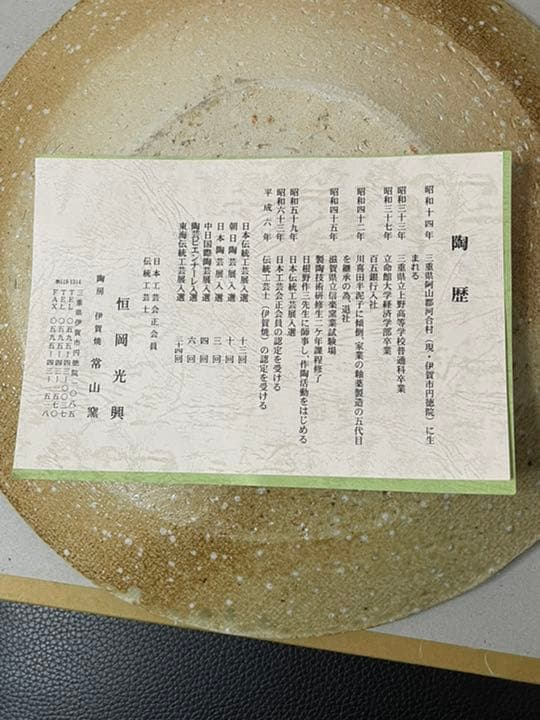 陶歴
昭和十四年 三重県阿山郡河合村（現・伊賀市円徳院）に生
まれる
昭和三十三年 三重県立上野高等学校普通科卒業
昭和三十七年 立命館大学経済学部卒業
百五銀行入社
昭和四十二年 川喜田半泥子に傾倒、家業の釉薬製造の五代目
を継承の為、退社
昭和四十五年 滋賀県立信楽窯業試験場
製陶技術研修生一ケ年課程修了
日根野作三先生に師事し、作陶活動をはじめる
昭和五十九年 日本伝統工芸展入選
昭和六十三年 日本工芸会正会員の認定を受ける
平成六年 伝統工芸士（伊賀焼）の認定を受ける
日本伝統工芸展入選 十二回
朝日陶芸展入選 十回
日本陶芸展入選 三回
中日国際陶芸展入選 四回
陶芸ビエンナーレ入選 六回
東海伝統工芸展入選 十四回
日本工芸会正会員
伝統工芸士
恒岡光興
陶房 伊賀焼 常山窯
〒518-1314 三重県伊賀市円徳院二〇八五
TEL 〇五九五―四三―〇〇三七